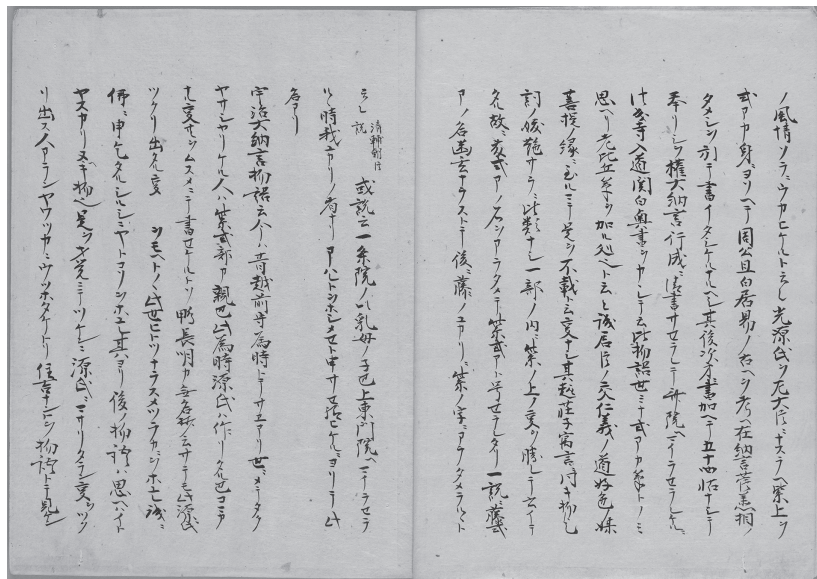 ノ風情ソラニウカヒケルト云々光源氏ヲ左大臣ニナスラヘ紫上ヲ
式アカ身ニヨソヘテ周公旦白居易ノ古ヘヲ考ヘ在納言菅丞相ノ
タメシヲ引テ書イタシケルナルヘシ其後次第書加ヘテ五十四帖ナシテ
奉リシヲ権大納言行成ニ清書サセラレテ斎院ヘマイラセラレケルニ
法成寺入道関白奥書ヲカヽレテ云此物語世ミナ式アカ筆トノミ
思ヘリ老比丘筆ヲ加ル処ヘト云々誠君臣ノ交仁義ノ道好色ノ媒
菩提ノ縁ニ至ルマテ是ヲ不載ト云事ナシ其趣荘子寓言同キ物也
詞ノ妖艶サラニ比類ナシ一部ノ内ニ紫ノ上ノ事ヲ勝レテ云イテ
タル故ニ藤式アノ名ヲアラタメテ紫式アト号セラレタリ一説ニ藤式
アノ名幽玄ナラストテ後ニ藤ノユカリニ紫ノ字ニアラタメラルト
云々説
清輔朝臣説
或説云一条院ノ御乳母ノ子也上東門院ヘマイラセラ
ルヽ時我カユカリノ者ナリアハレトヲホシメセト申サセ給ヒケルニヨリテ此
名アリ
宇治大納言物語云今ハ昔越前守為時トテサエアリ世ニメテタク
ヤサシカリケル人ハ紫式部カ親也此為時源氏ハ作リタル也コマカ
ナル事サヲムスメニテ書セケルトソ鴨長明カ無名抄云サテモ此源氏
ツクリ出タル事ヲモヘトノ此世ヒトツナラスメツラカニヲホユ誠ニ
仏ニ申ケタルシルシニヤトコソヲホユ其ヨリ後ノ物語ハ思ヘハイト
ヤスカリヌヘキ物也是ヲ才覚ニテツケレハ源氏ニマサリタラン事ヲツク
リ出ス人アランヤワツカニウツホタケトリ住吉ナトヲ物語トテ見シ